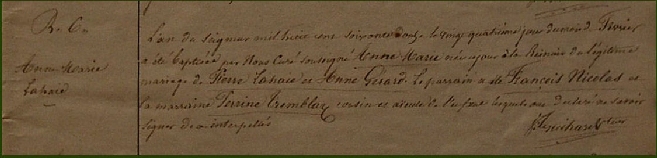 B. C.
Anne Marie
Lahaie
L'an du Seigneur mil huit cent soixante douze le vingt quatrième jour du mois de Fevrier
a été Baptisée par Nous Curé soussigné Anne Marie née ce jour à la Rivière du légitime
mariage de Pierre Lahaie et Anne Gérard. Le parrain a été François Nicolas et
la marraine Perrine Tremblay cousin et aieule de l'enfant lesquels ont déclaré ne savoir
signer de ce interpellés